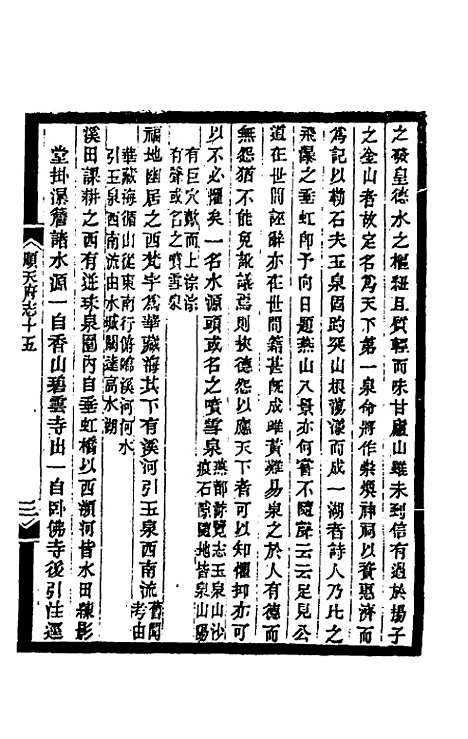 之發皇德水之樞紐且質輕而味甘廬山雖未到信有過於揚子
之金山者故定名爲天下第一泉命將作崇煥神祠以資惠濟而
爲記以勒石夫玉泉固趵突山根蕩漾而成一湖者詩人乃比之
飛瀑之垂虹卽予向日題燕山八景亦何嘗不隨聲云云足見公
道在世間誣辭亦在世間籍甚旣成雌黃難易泉之於人有德而
無怨猶不能免訛議焉則挾德怨以應天下者可以知懼抑亦可
以不必懼矣一名水源頭或名之噴雪泉燕都游覽志玉泉山沙
痕石隙隨地皆泉山陽
有巨穴歕而上淙淙
有聲或名之噴雪泉
福地幽居之西梵字爲華藏海其下有溪河引玉泉西南流舊聞
考由
華藏海循山從東南行俯臨溪河河水
引玉泉西南流由水城關達高水湖
溪田課耕之西有迸珠泉園內自垂虹橋以西瀕河皆水田鏡影
堂掛瀑簷諸水源一自香山碧雲寺出一自臥佛寺後引注逕
順天府志十五
三